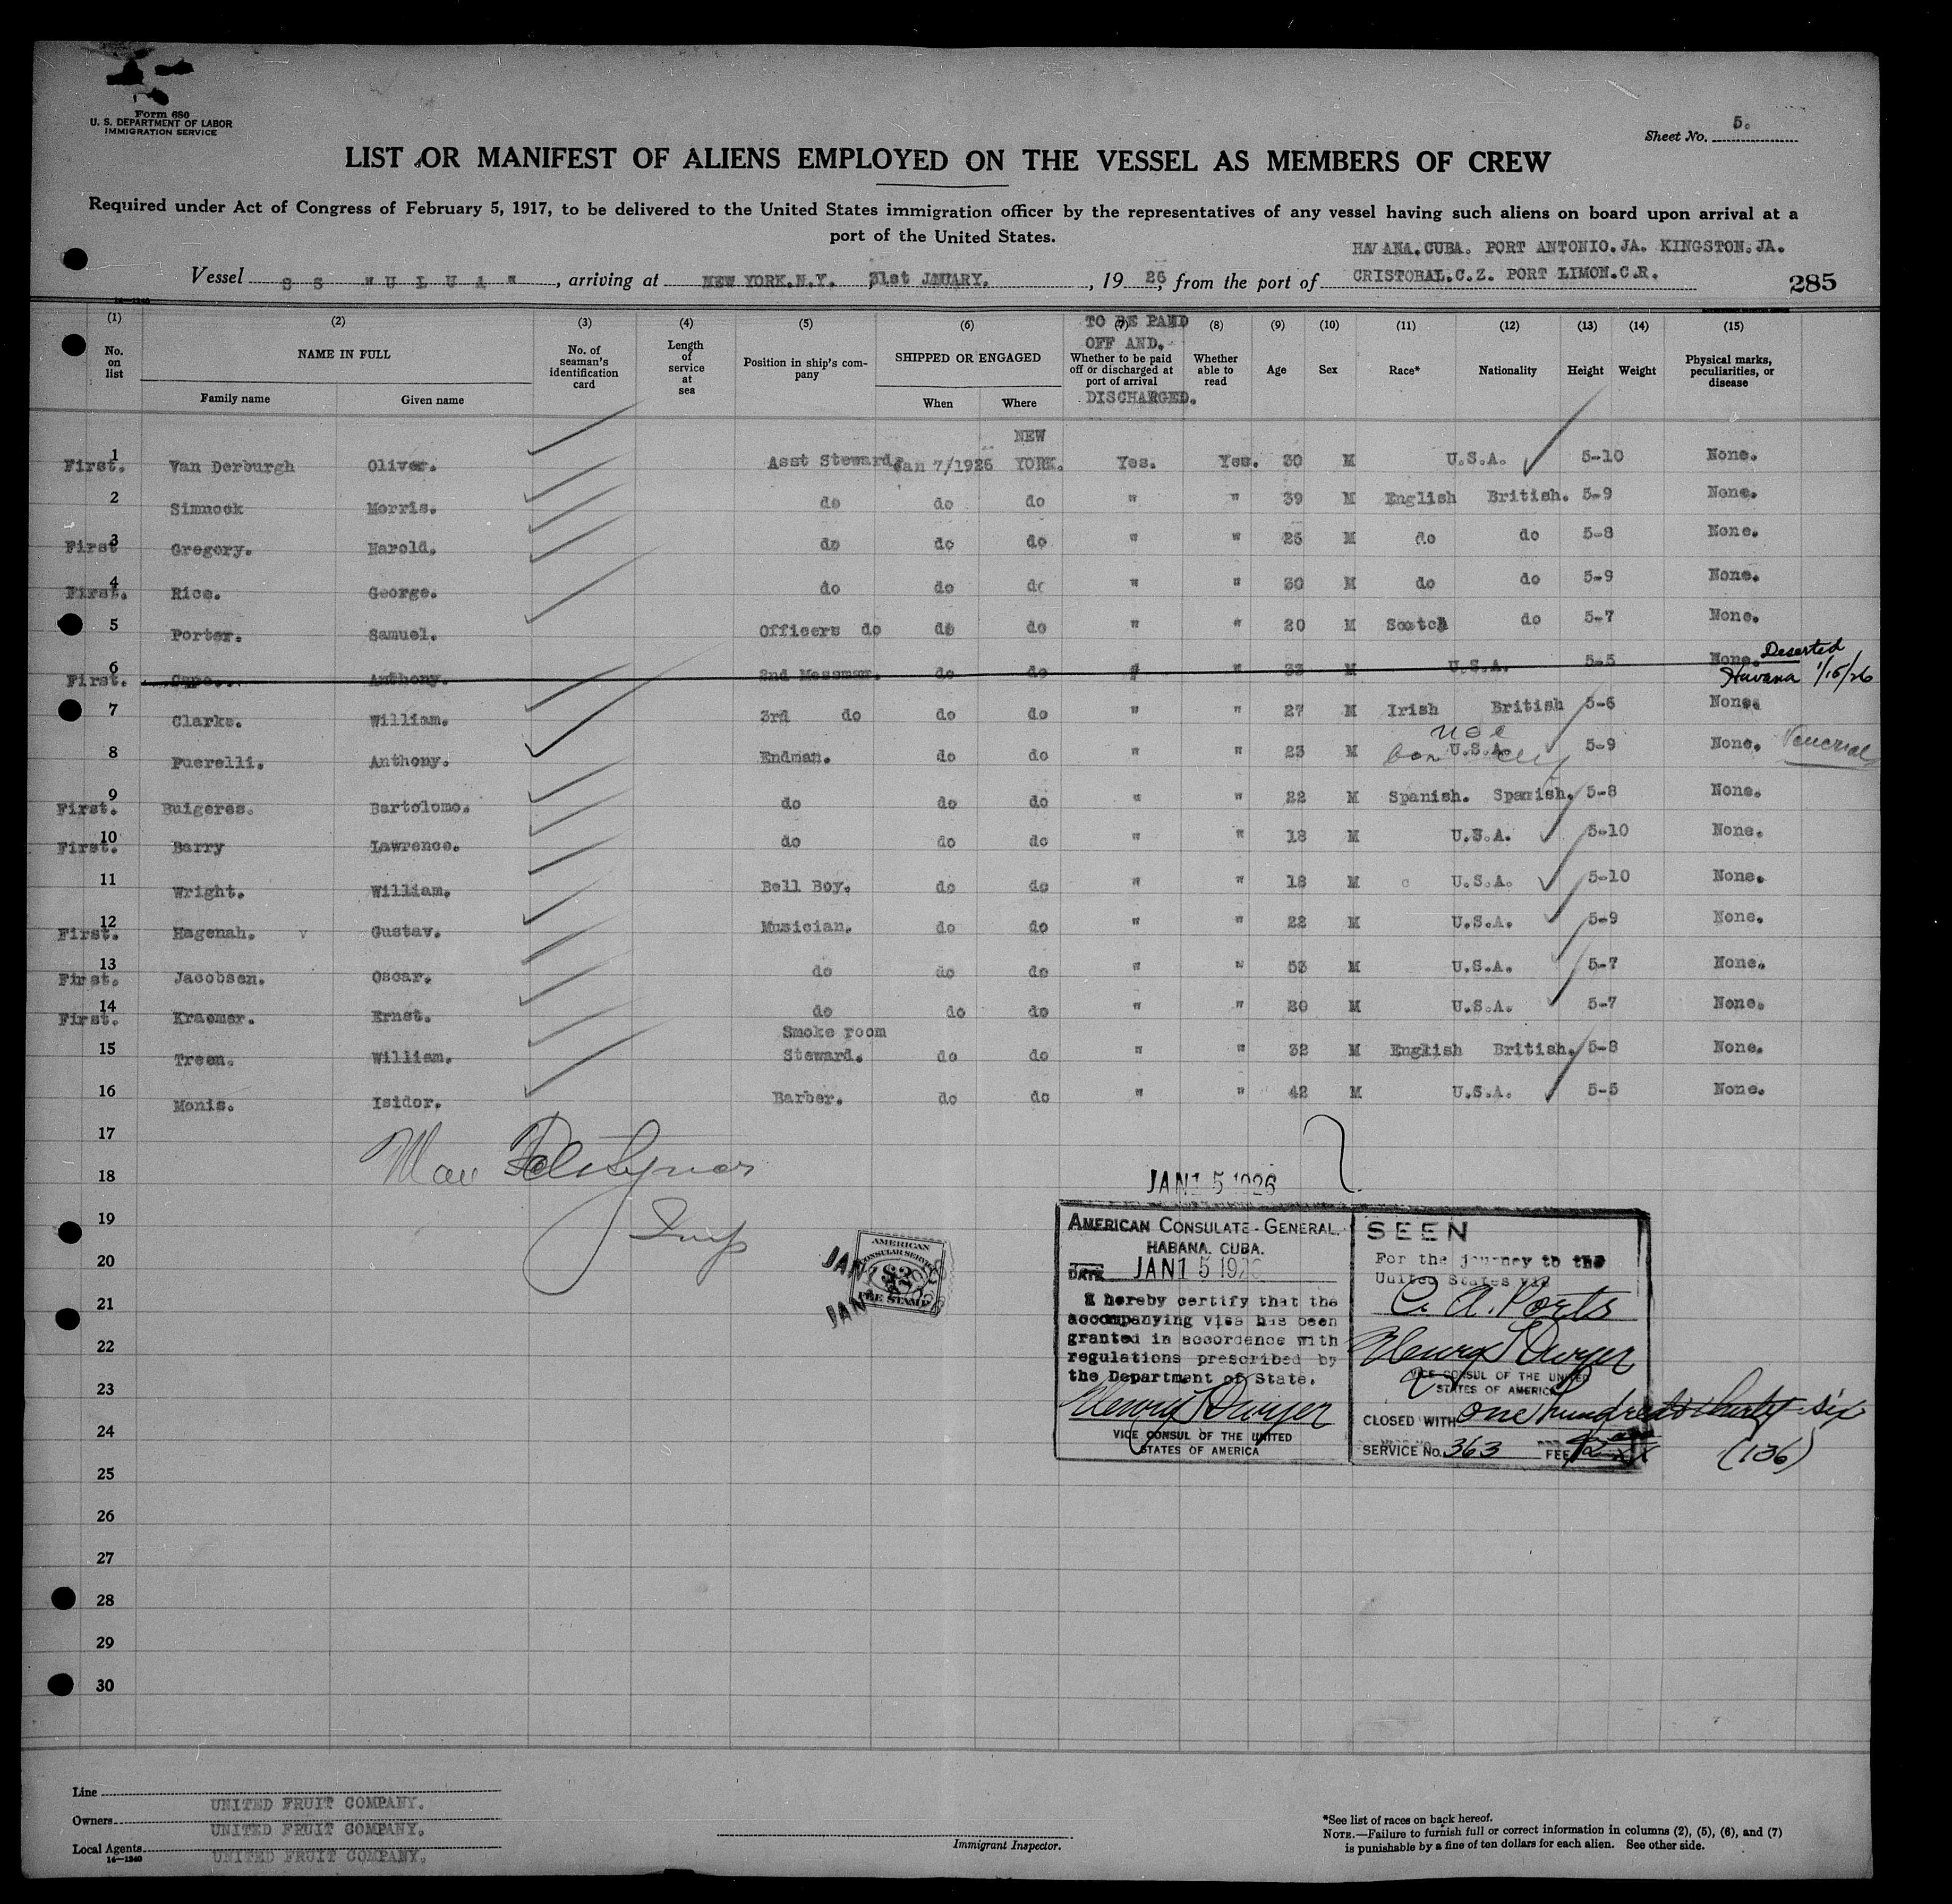 Form 680
U. S. DEPARTMENT OF LABOR
IMMIGRATION SERVICE
Sheet No. 5.
LIST OR MANIFEST OF ALIENS EMPLOYED ON THE VESSEL AS MEMBERS OF CREW
Required under Act of Congress of February 5, 1917, to be delivered to the United States immigration officer by the representatives of any vessel having such aliens on board upon arrival at a
port of the United States.
HAVANA.CUBA. PORT ANTONIO.JA. KINGSTON.JA.
Vessel S S , arriving at NEW YORK.N.Y. 31st JANUARY. , 19 26, from the port of CRISTOBAL.C.Z. PORT LIMON.C.R. 285
(1) (2) (3) (4) (5) (6) (7) (8) (9) (10) (11) (12) (13) (14) (15)
TO BE PAID OFF AND. DISCHARGED.
No. on list NAME IN FULL No. of seaman's identification card Length of service at sea Position in ship's company SHIPPED OR ENGAGED Whether to be paid off or discharged at port of arrival Whether able to read Age Sex Race* Nationality Height Weight Physical marks, peculiarities, or disease
Family name Given name When Where
First. 1 Van Derburgh Oliver. Asst Steward. Jan 7/1926 NEW YORK. Yes. Yes. 30 M U.S.A. 5-10 None.
2 Simnock Morris. do do do " " 39 M English British. 5-9 None.
First 3 Gregory. Harold. do do do " " 25 M do do 5-8 None.
First. 4 Rice. George. do do do " " 30 M do do 5-9 None.
5 Porter. Samuel. Officers do do do " " 20 M Scotch do 5-7 None.
First. 6 Anthony. 2nd Messman. do do " " 33 M U.S.A. 5-5 None. Deserted Havana 1/15/26
7 Clarke. William. 3rd do do do " " 27 M Irish British 5-6 None.
8 Puerelli. Anthony. Endman. do do " " 23 M U.S.A. 5-9 None. Venereal
First. 9 Buigeres. Bartolomo. do do do " " 22 M Spanish. Spanish. 5-8 None.
First. 10 Barry Lawrence. do do do " " 18 M U.S.A. 5-10 None.
11 Wright. William. Bell Boy. do do " " 18 M U.S.A. 5-10 None.
First. 12 Hagenah. v Gustav. Musician. do do " " 22 M U.S.A. 5-9 None.
First. 13 Jacobsen. Oscar. do do do " " 53 M U.S.A. 5-7 None.
First. 14 Kraemer. Ernst. do do do " " 20 M U.S.A. 5-7 None.
15 Treen. William. Smoke room Steward. do do " " 32 M English British. 5-8 None.
16 Monis. Isidor. Barber. do do " " 42 M U.S.A. 5-5 None.
17
18
19
20
21
22
23
24
25
26
27
28
29
30
Insp
AMERICAN
CONSULAR SERVICE
$2
FEE STAMP
JAN
JAN
JAN 15 1926
AMERICAN CONSULATE-GENERAL.
HABANA. CUBA.
DATE JAN 15 1926
I hereby certify that the
accompanying visa has been
granted in accordance with
regulations prescribed by
the Department of State.
Henry T Dwyer
VICE CONSUL OF THE UNITED
STATES OF AMERICA
SEEN
For the journey to the
United States via
C. A. Ports
Henry T Dwyer
VICE CONSUL OF THE UNITED
STATES OF AMERICA
CLOSED WITH one hundred & thirty six
(136)
SERVICE No. 363 FEE
Line UNITED FRUIT COMPANY.
Owners UNITED FRUIT COMPANY.
Local Agents UNITED FRUIT COMPANY.
14—1240
Immigrant Inspector.
*See list of races on back hereof.
NOTE.—Failure to furnish full or correct information in columns (2), (5), (6), and (7)
is punishable by a fine of ten dollars for each alien. See other side.